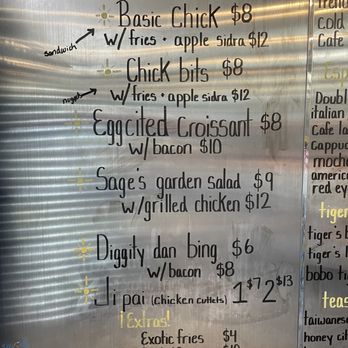 Basic Chick $8
sandwich
w/ fries • apple sidra $12
Chick bits $8
nugget
w/ fries • apple sidra $12
Eggcited Croissant $8
w/ bacon $10
Sage's garden salad $9
w/grilled chicken $12
Diggity dan bing $6
w/ bacon $8
Ji pai (chicken cutlets) 1 $7 2 $13
!Extras!
Exotic fries $4
cold
Cafe
Doubl
italian
Cafe la
Cappuc
moch
americ
red ey
tiger
tiger's b
tiger's
bobo ti
teas
taiwanes
honey cit